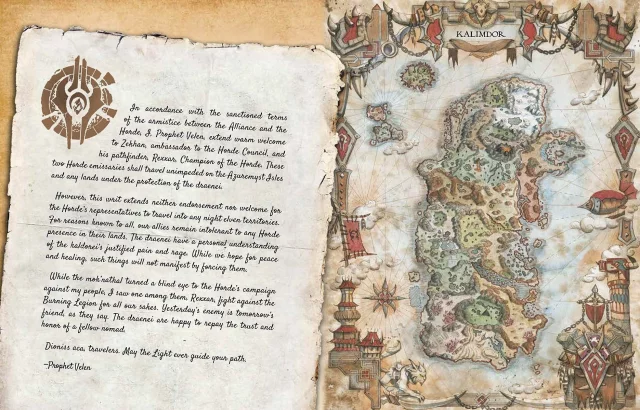 In accordance with the sanctioned terms
of the armistice between the Alliance and the
Horde, I, Prophet Velen, extend warm welcome
to Zekhan, ambassador to the Horde Council, and
his pathfinder, Rexxar, Champion of the Horde. These
two Horde emissaries shall travel unimpeded on the Azuremyst Isles
and any lands under the protection of the draenei.
However, this writ extends neither endorsement nor welcome for
the Horde's representatives to travel into any night elven territories.
For reasons known to all, our allies remain intolerant to any Horde
presence in their lands. The draenei have a personal understanding
of the kaldorei's justified pain and rage. While we hope for peace
and healing, such things will not manifest by forcing them.
While the mok'nathal turned a blind eye to the Horde's campaign
against my people, I saw one among them, Rexxar, fight against the
Burning Legion for all our sakes. Yesterday's enemy is tomorrow's
friend, as they say. The draenei are happy to repay the trust and
honor of a fellow nomad.
Dioniss aca, travelers. May the Light ever guide your path,
—Prophet Velen
KALIMDOR